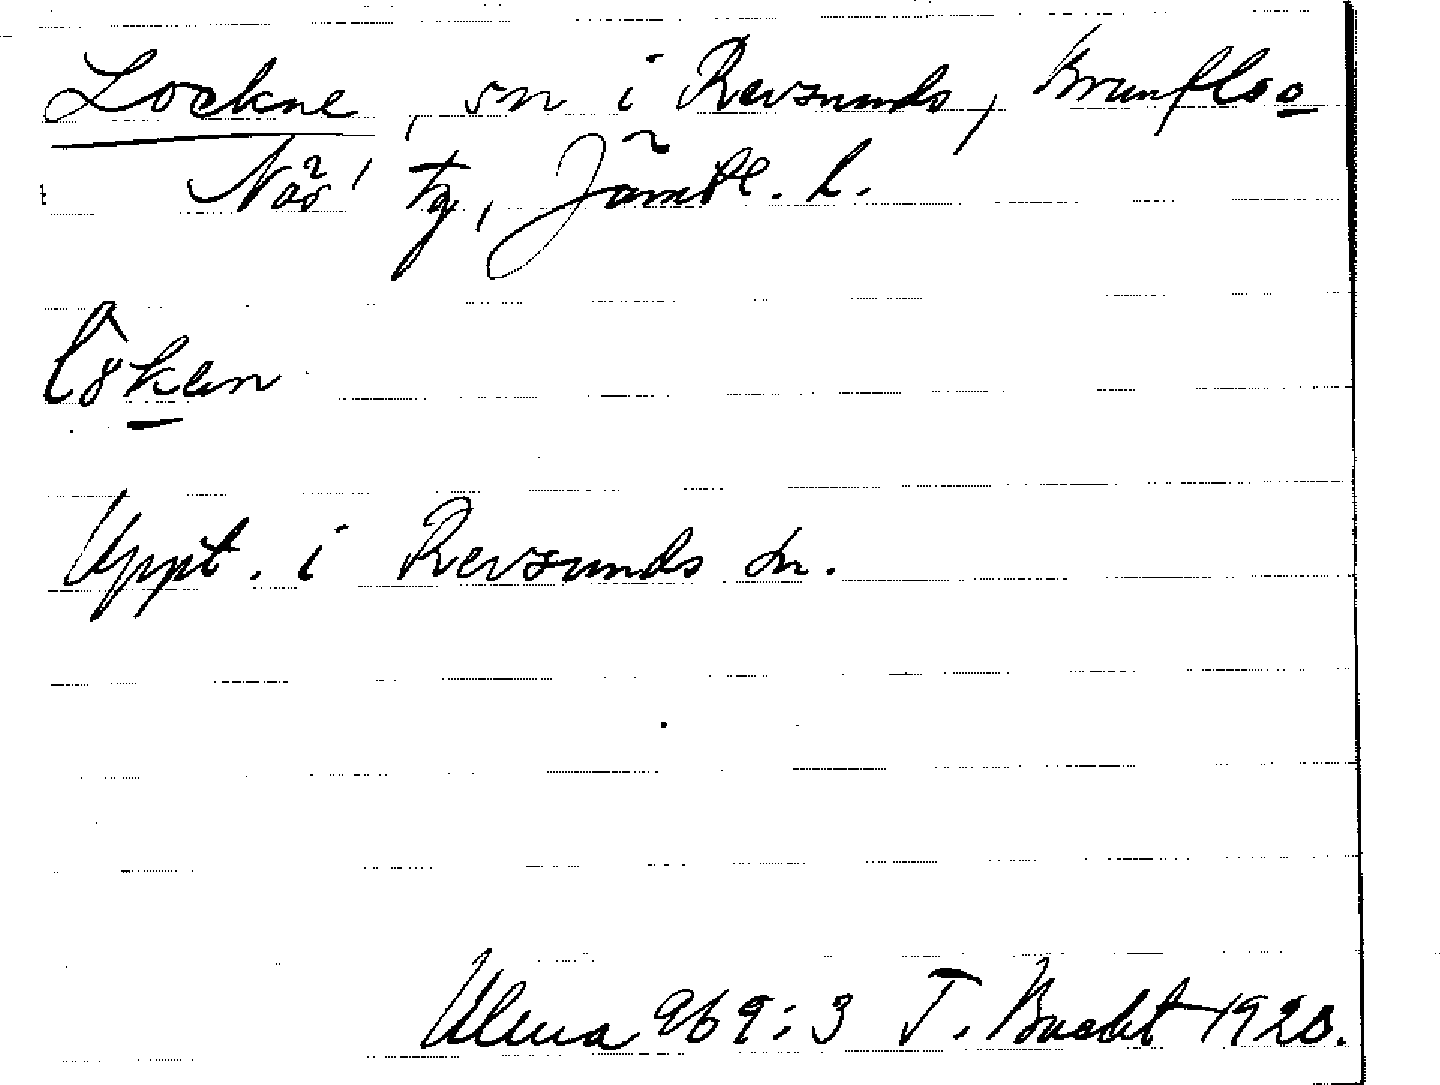 Lockne, sn i Revsunds, Brunflo o
Näs' tg, Jämtl. l.
Uppt. i Revsunds sn.
Ulma 969:3 T. Bucht 1920.